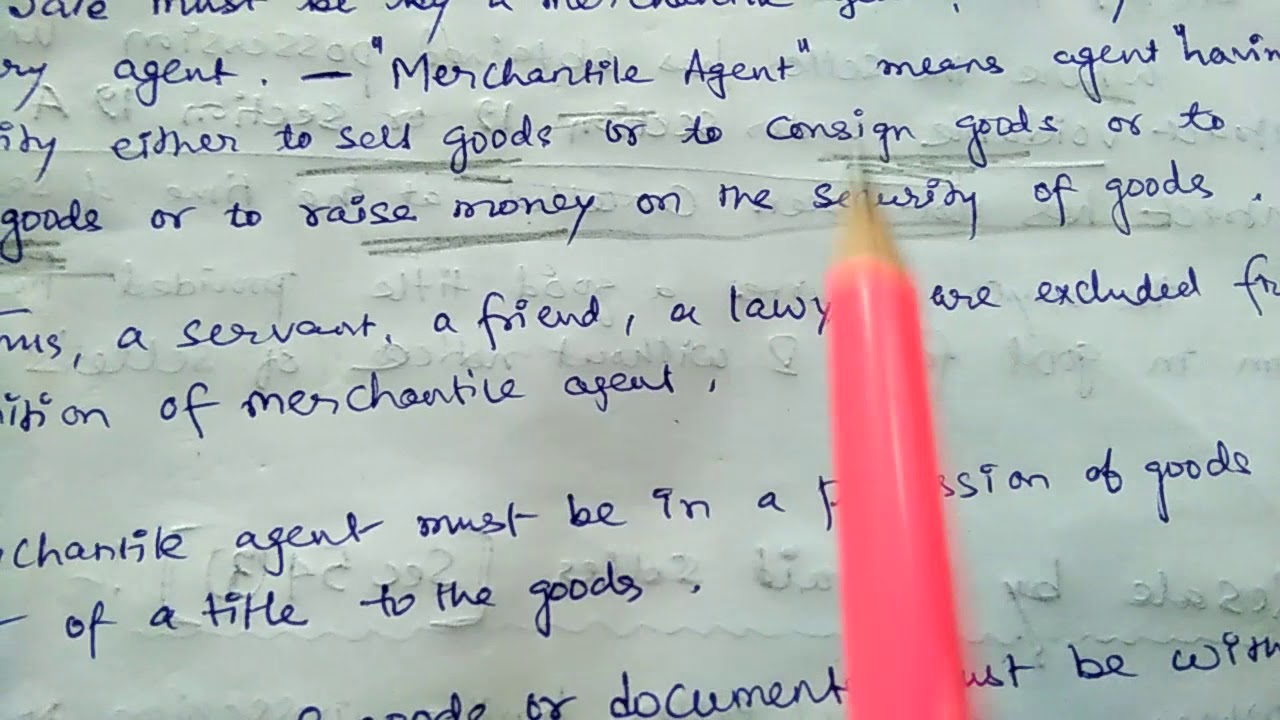 Sale must be by a mercantile
ry agent. — "Merchantile Agent" means agent "havin
ity either to sell goods or to consign goods or to
goods or to raise money on the security of goods.
ms, a servant, a friend, a lawy are excluded fr
nition of merchantile agent.
chantile agent must be in a p ssion of goods
of a title to the goods.
goods or document ust be with